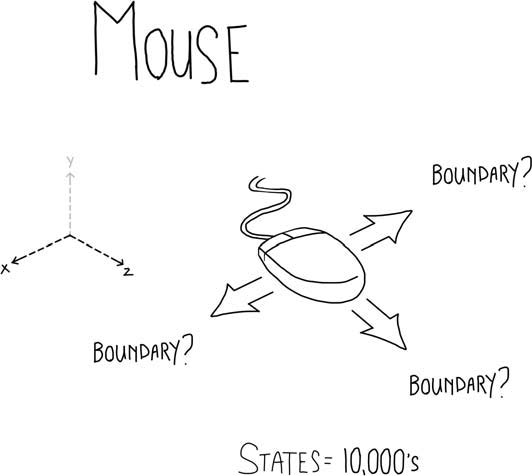 MOUSE
Y
BOUNDARY?
X
Z
BOUNDARY?
BOUNDARY?
STATES= 10,000's